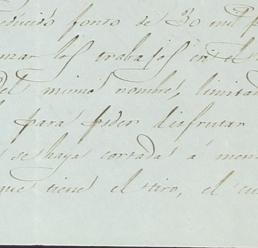 fonto de 30 mil
los trabajos en el
del mismo nombre, limitad
para poder disfrutar
se haya cortada a men
que tiene el tiro, el cu